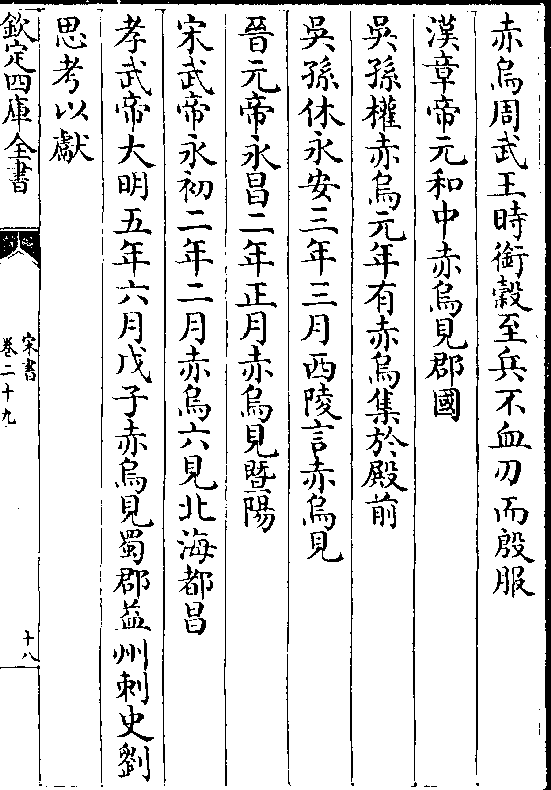 赤烏周武王時銜穀至兵不血刃而殷服
漢章帝元和中赤烏見郡國
吳孫權赤烏元年有赤烏集於殿前
吳孫休永安三年三月西陵言赤烏見
晉元帝永昌二年正月赤烏見暨陽
宋武帝永初二年二月赤烏六見北海都昌
孝武帝大明五年六月戊子赤烏見蜀郡益州刺史劉
思考以獻
欽定四庫全書
宋書
卷二十九
十八